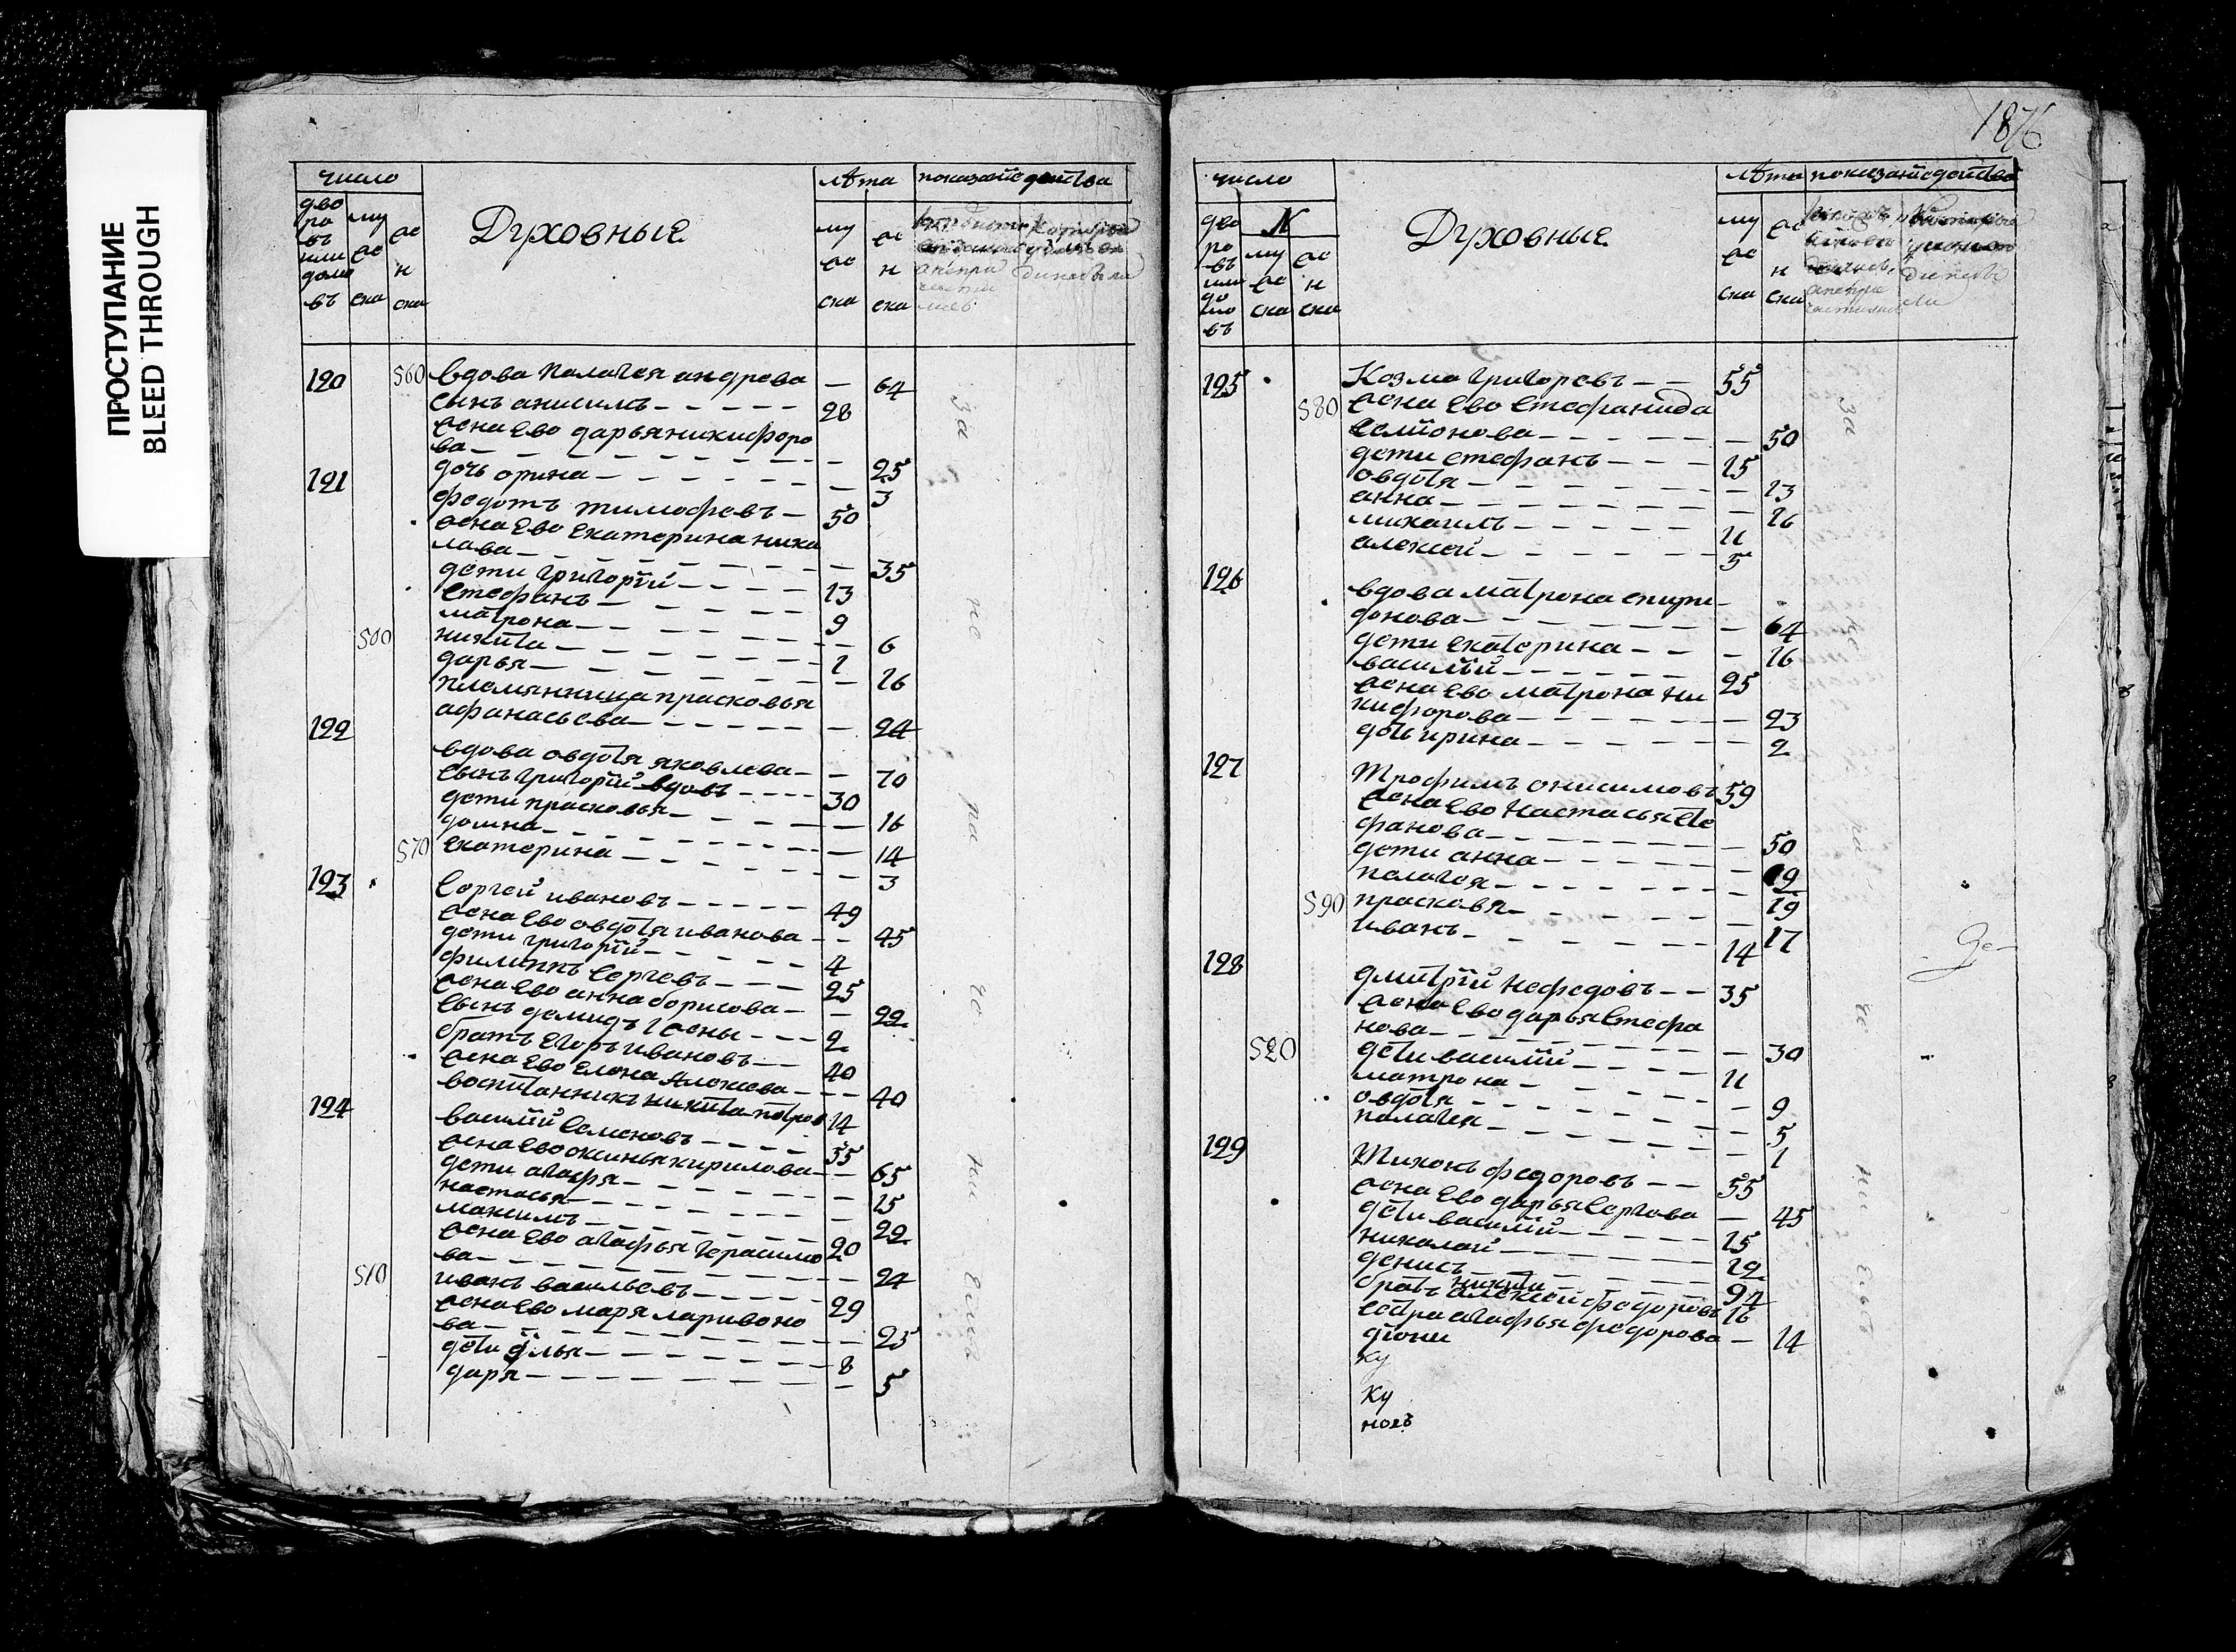 ПРОСТУПАНИЕ
BLEED THROUGH
число
лѣта
показанїе действа
дво
ро
въ
или
домо
въ
му
жс
ска
жс
н
ска
Духовные
му
жс
ска
жс
н
ска
120 560 вдова палагея андрева — 64
сынъ анисимъ 28
жена Ево дарья никифоро
ва — 25
дочь орина — 3
121 федотъ тимофевъ — 50
жена Ево Екатерина нико
лава — 35
дети григорїй — 13
стефанъ — 9
матрона — 6
500 никита — 1
дарья — 16
племянница прасковья
афанасьева — 24
122 вдова овдотя яковлева — 70
сынъ григорїй вдовъ — 30
дети прасковья — 16
домна — 14
570 Екатерина — 3
123 Сергей ивановъ — 49
жена Ево овдотя иванова — 45
дети григорїй — 4
филиппъ Сергевъ — 25
жена Ево анна борисова — 22
сынъ демидъ 1 жены — 2
братъ Егоръ ивановъ — 40
жена Ево Елена Алексева — 40
воспитанникъ никита петров 14
124 василїй Семеновъ — 55
жена Ево оксинья кирилова — 65
дети агафя — 15
настасья — 22
максимъ — 20
жена Ево агафья Герасимо
ва — 24
510 иванъ васильевъ — 29
жена Ево маря ларивоно
ва — 25
дети илья — 8
даря — 5
1876
число
лѣта
показанїе действа
дво
ро
въ
или
до
мо
въ
N
му
жс
ска
жс
н
ска
Духовные
му
жс
ска
жс
н
ска
125 Козма григоревъ — 55
580 жена Ево Стефанида
Семионова — 50
дети стефанъ — 15
овдотя — 13
анна — 16
михаилъ — 11
алексей — 5
126 вдова матрона спири
донова — 64
дети екатерина — 16
василїй — 25
жена Ево матрона ни
кифорова — 23
дочь ирина — 2
127 Трофимъ онисимовъ 59
жена Ево Настасья Сте
фанова — 50
дети анна — 19
палагея — 19
590 прасковя — 17
иванъ — 14
128 дмитрїй Нефедовъ — 35
жена Ево дарья Стефа
нова — 30
520 дети василїй — 11
матрона — 9
овдотя — 5
палагея — 1
129 Тихонъ федоровъ — 55
жена Ево дарья Сергова — 45
дети василїй — 15
николай — 12
денисъ — 9
никита 4
братъ алексей федоровъ 16
сестра агафья федорова — 14
дїони
ку
ку
ноеъ
за
но
ра
че
ни
емъ
за
но
ра
че
ни
емъ
Де-